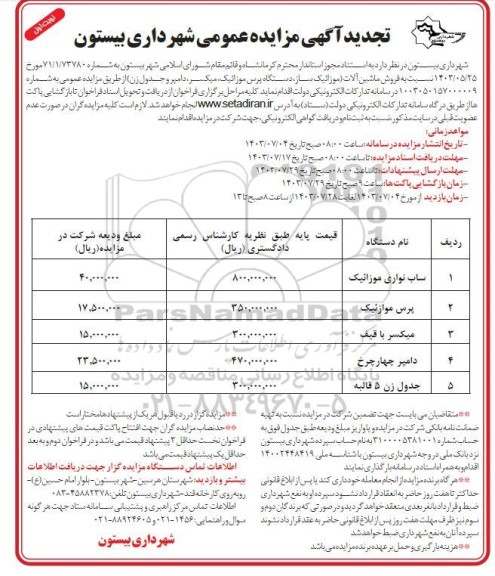 نوبت اول
تجدید آگهی مزایده عمومی شهرداری بیستون
شهرداری بیستون در نظر دارد به استناد مجوز استاندار محترم کرمانشاه و قائم مقام شورای اسلامی شهر بیستون به شماره ۷۱/۱/۷۳۷۸۰ مورخ
۱۴۰۳/۰۵/۲۵ نسبت به فروش ماشین آلات (موزائیک ساز، دستگاه پرس موزائیک، میکسر، دامپر و جدول زن) از طریق مزایده عمومی به شماره
۱۰۰۳۰۵۰۱۵۷۰۰۰۰۰۹ در سامانه تدارکات الکترونیکی دولت اقدام نماید. کلیه مراحل برگزاری فراخوان از دریافت و تحویل اسناد فراخوان تا بازگشایی پاکت
ها از طریق درگاه سامانه تدارکات الکترونیکی دولت (ستاد) به آدرس www.setadiran.ir انجام خواهد شد. لازم است کلیه مزایده گران در صورت عدم
عضویت قبلی در سایت مذکور نسبت به ثبت نام و دریافت گواهی الکترونیکی، جهت شرکت در مزایده اقدام نمایند
مواعد زمانی:
- تاریخ انتشار مزایده در سامانه: ساعت ۰۸:۰۰ صبح تاریخ ۱۴۰۳/۰۷/۰۴
- مهلت دریافت اسناد مزایده: تا ساعت ۰۸:۰۰ صبح تاریخ ۱۴۰۳/۰۷/۱۷
- مهلت ارسال پیشنهادات: تا ساعت ۰۸:۰۰ صبح تاریخ ۱۴۰۳/۰۷/۲۹
- زمان بازگشایی پاکت ها: ساعت ۹ صبح تاریخ ۱۴۰۳/۰۷/۲۹
- زمان بازدید از مورخ ۱۴۰۳/۰۷/۰۴ لغایت ۱۴۰۳/۰۷/۲۸ از ساعت ۸ صبح تا ۱۳
ردیف نام دستگاه قیمت پایه طبق نظریه کارشناس رسمی دادگستری (ریال) مبلغ ودیعه شرکت در مزایده (ریال)
۱ ساب نواری موزائیک ۸۰۰,۰۰۰,۰۰۰ ۴۰,۰۰۰,۰۰۰
۲ پرس موازئیک ۳۵۰,۰۰۰,۰۰۰ ۱۷,۵۰۰,۰۰۰
۳ میکسر با قیف ۳۰۰,۰۰۰,۰۰۰ ۱۵,۰۰۰,۰۰۰
۴ دامپر چهارچرخ ۴۷۰,۰۰۰,۰۰۰ ۲۳,۵۰۰,۰۰۰
۵ جدول زن ۵ قالبه ۳۰۰,۰۰۰,۰۰۰ ۱۵,۰۰۰,۰۰۰
ParsNamadData
پایگاه اطلاع رسانی مناقصه و مزایده
۰۲۱-۸۸۳۴۹۶۷۰-۵
**متقاضیان می بایست جهت تضمین شرکت در مزایده نسبت به تهیه
ضمانت نامه بانکی شرکت در مزایده و یا واریز مبلغ ودیعه طبق جدول فوق به
حساب شماره ۳۱۰۰۰۰۵۳۸۱۰۰۱ به نام حساب سپرده شهرداری بیستون
نزد بانک ملی در وجه شهرداری بیستون با شناسه ملی ۱۴۰۰۲۴۴۸۴۱۹
اقدام و به همراه اسناد در سامانه بارگذاری نمایند
**هرگاه برنده مزایده از انجام معامله خودداری کند یا پس از ابلاغ قانونی
حداکثر تا هفت روز حاضر به انعقاد قرارداد نشود سپرده او به نفع شهرداری
ضبط و قرارداد با نفر بعدی منعقد خواهد گردید و در صورتی که برندگان دوم و
سوم نیز ظرف مهلت هفت روز پس از ابلاغ قانونی حاضر به عقد قرارداد نشوند
سپرده آنان به نفع شهرداری ضبط خواهد شد
**هزینه بارگیری و حمل بر عهده برنده مزایده می باشد
**مزایده گزار در رد یا قبول هر یک از پیشنهادها مختار است
**حد نصاب مزایده گران جهت افتتاح پاکت قیمت های پیشنهادی در
فراخوان نخست حداقل ۳ پیشنهاد قیمت می باشد و در فراخوان دوم و به بعد
حداقل یک پیشنهاد قیمت می باشد
اطلاعات تماس دستگاه مزایده گزار جهت دریافت اطلاعات
بیشتر و بازدید: شهرستان هرسین - شهر بیستون - بلوار امام حسین(ع) -
روبه روی کارخانه قند - شهرداری بیستون تلفن: ۴۵۸۸۲۳۷۸-۰۸۳
اطلاعات تماس مرکز راهبری و پشتیبانی سامانه ستاد جهت هر گونه
سوال و راهنمایی: ۱۴۵۶-۰۲۱ و ۸۸۹۲۴۶۰۵-۰۲۱
شهرداری بیستون